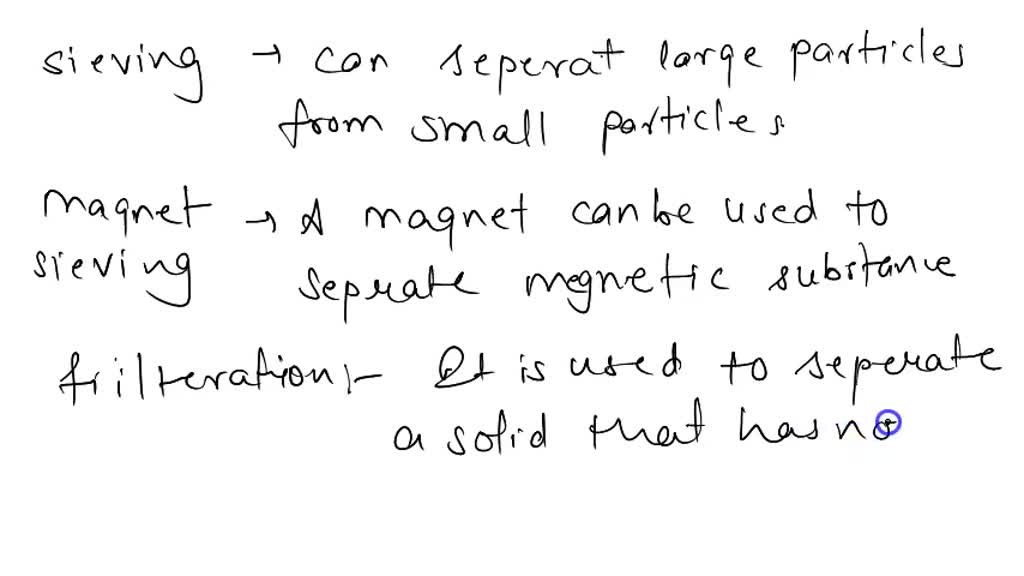 sieving → can seperat large particles
from small particles
magnet → A magnet can be used to
sieving seprate megnetic substance
frilteration:- It is used to seperate
a solid that has no